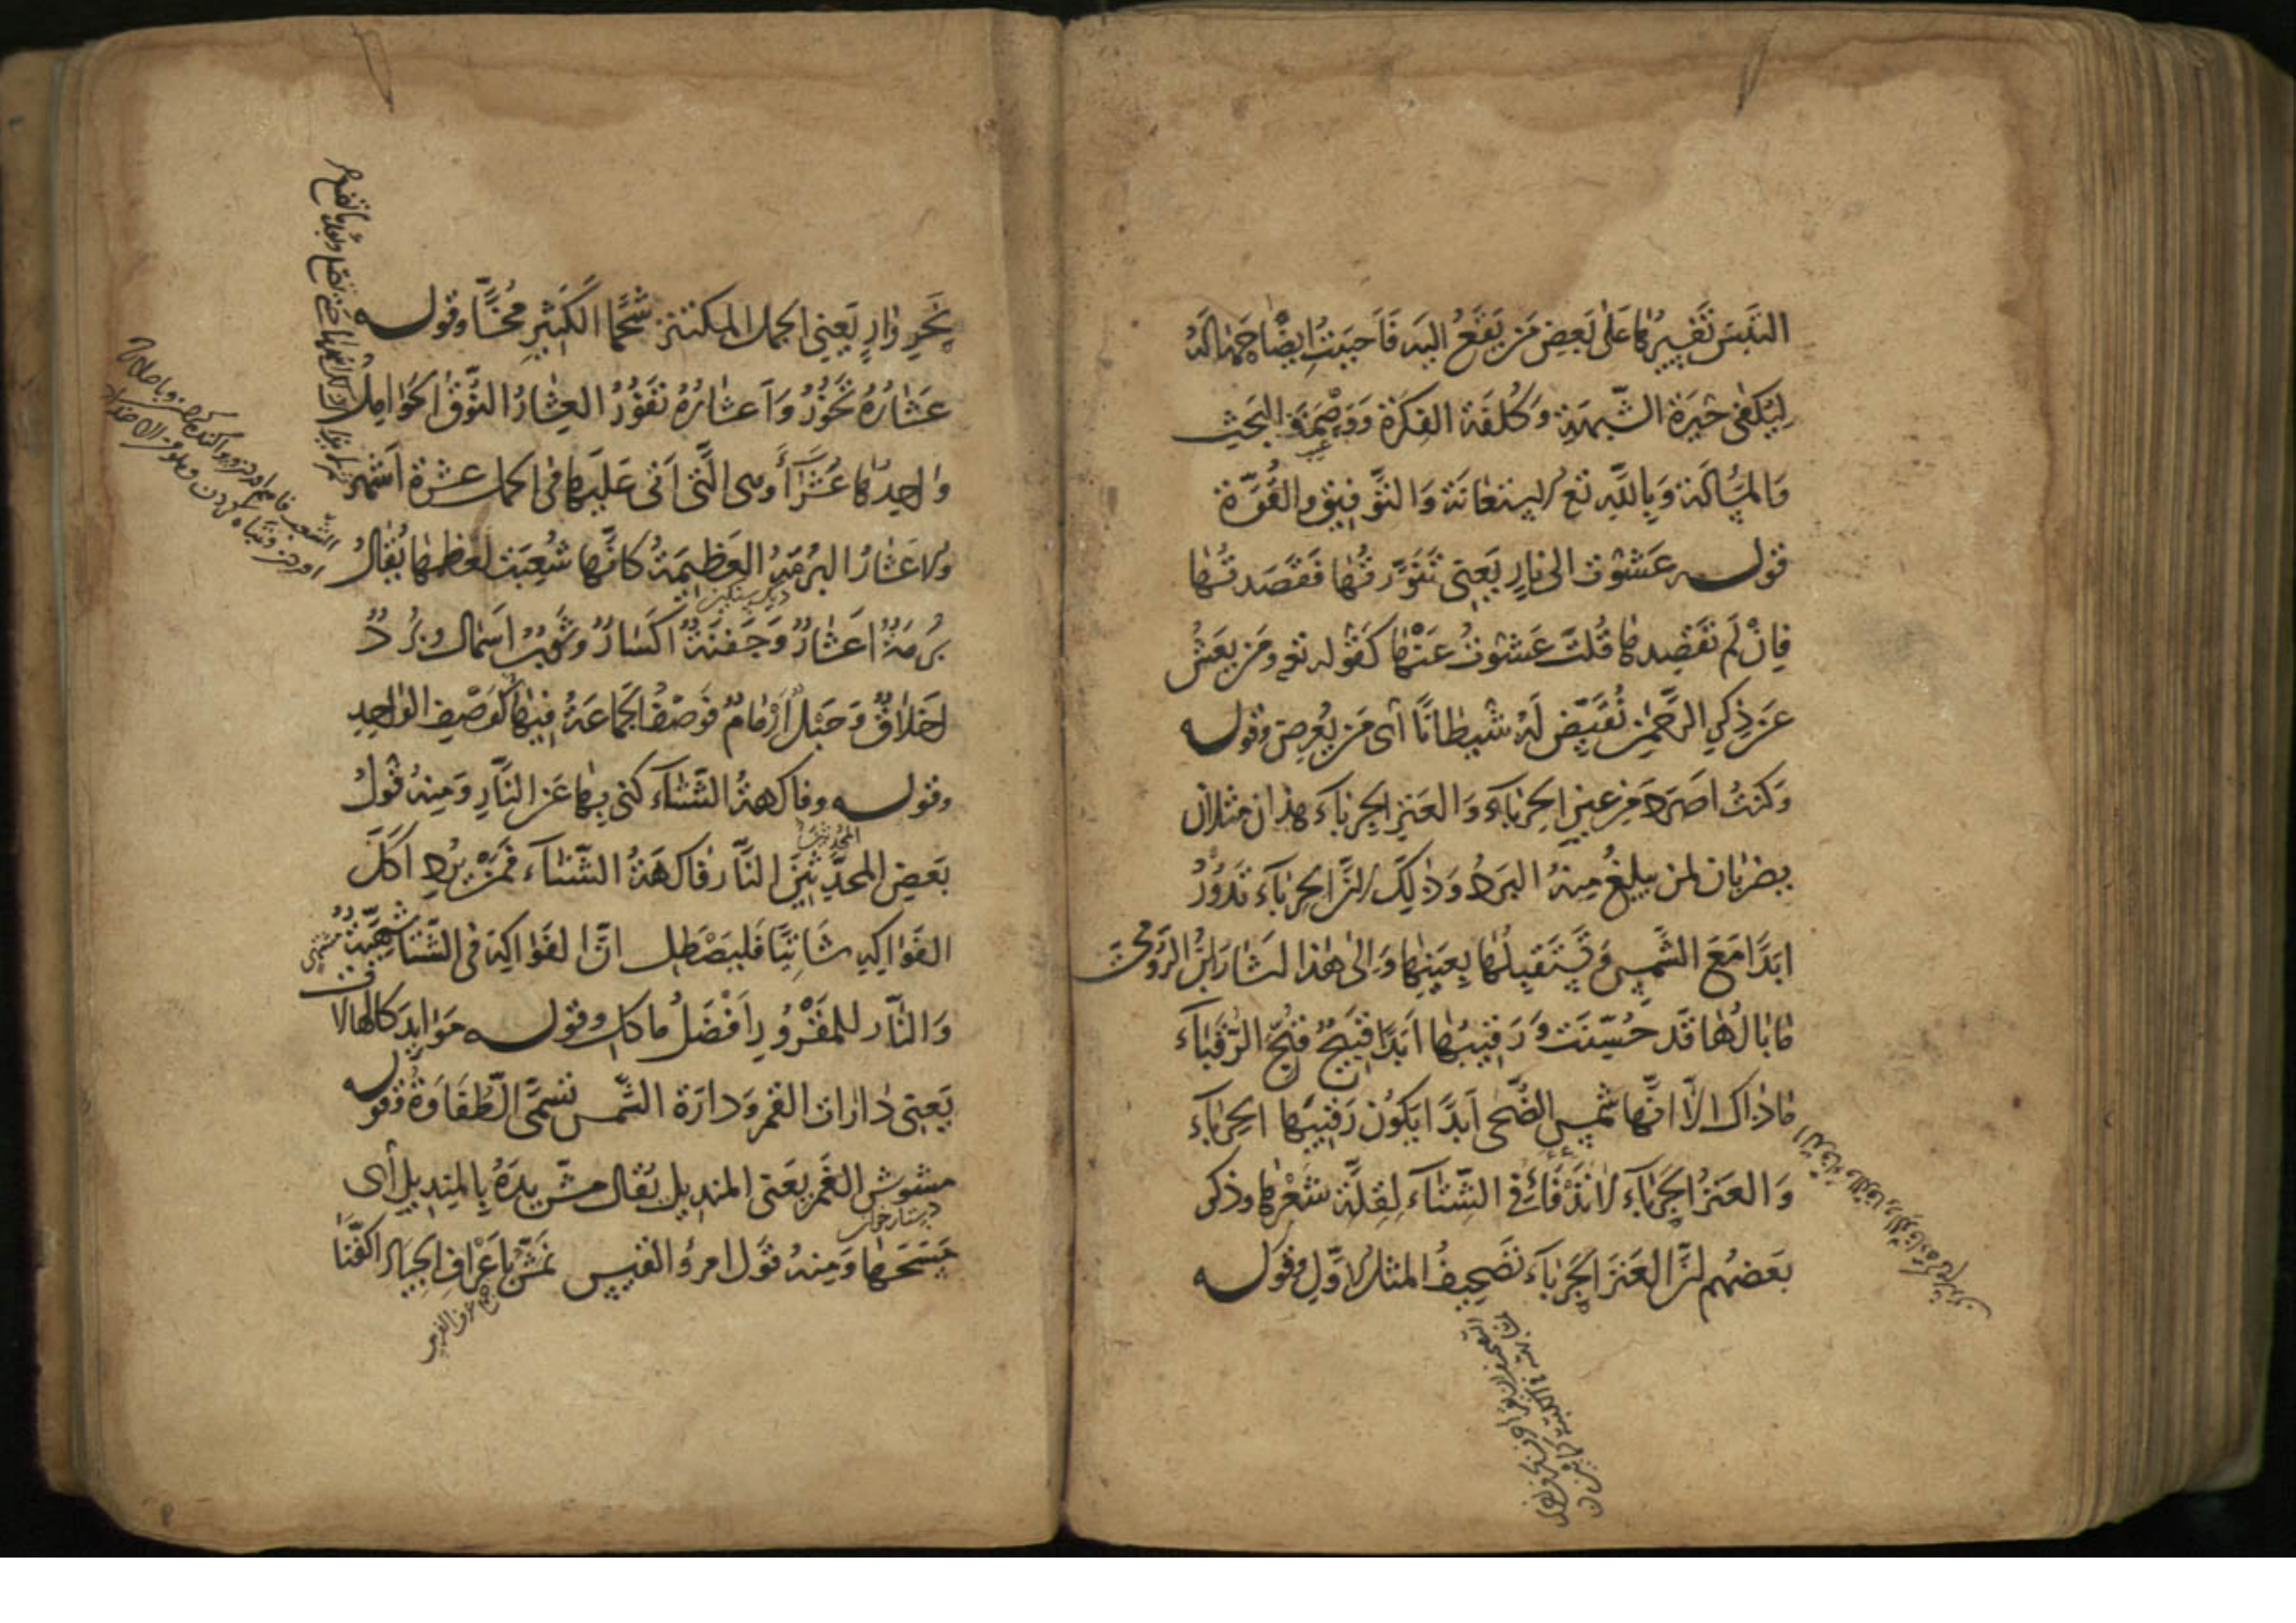 التبس تفسيرها على بعض من يقع اليه فاحببت ايضاحها له
ليكفى حيرة الشبهة وكلفة الفكرة ووصمة البحث
والمسألة وبالله تع الاستعانة والتوفيق والقوة
قوله عشوت الى نار يعنى تنورتها فقصدتها
فان لم تقصدها قلت عشوت عنها كقوله تع ومن يعش
عن ذكر الرحمن نقيض له شيطانا أى من يعرض وقوله
وكنت اصرد من عين الحرباء والعنز الجرباء هذان مثلان
يضربان لمن يبلغ منه البرد وذلك لان الحرباء تدور
ابدا مع الشمس وتستقبلها بعينها والى هذا اشار ابن الرومى
ما بالها قد حسنت ورقيبها ابدا قبيح قبح الرقباء
ما ذاك الا انها شمس الضحى ابدا يكون رقيبها الحرباء
والعنز الجرباء لا تدفأ فى الشتاء لقلة شعرها وذكر
بعضهم ان العنز الجرباء تصحيف المثل الاول وقوله
نحر وار يعنى الجمل المكتنز شحما الكثير مخا وقوله
عشاره تخور واعشاره تفور العشار النوق الحوامل
واحدها عشراء وهى التى اتى عليها فى الحمل عشرة اشهر
والاعشار البرمة العظيمة كانها شعبت لعظمها يقال
ديك سنگين
برمة اعشار وجفنة اكسار وثوب اسمال وبرد
اخلاق وحبل ارمام فوصف الجماعة فيها كوصف الواحد
وقوله وفاكهة الشتاء كنى بها عن النار ومنه قول
بعض المحدثين النار فاكهة الشتاء فمن يرد اكل
الفواكه شاتيا فليصطل ان الفواكه فى الشتا شهية
والنار للمقرور افضل ماكل وقوله موايد كالهالا
ت
يعنى دارات القمر ودارة الشمس تسمى الطفاوة وقوله
مشوش الغمر يعنى المنديل يقال مش يده بالمنديل أى
دستار خوان
مسحها ومنه قول امرؤ القيس نمش باعراف الجياد اكفنا
جمع عرف الفرس